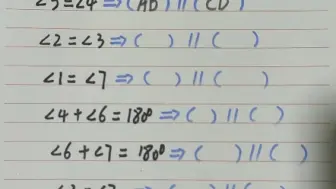 ∠3=∠4⇒(AD)∥(CD)
∠2=∠3⇒( )∥( )
∠1=∠7⇒( )∥( )
∠4+∠6=180°⇒( )∥( )
∠6+∠7=180°⇒( )∥( )